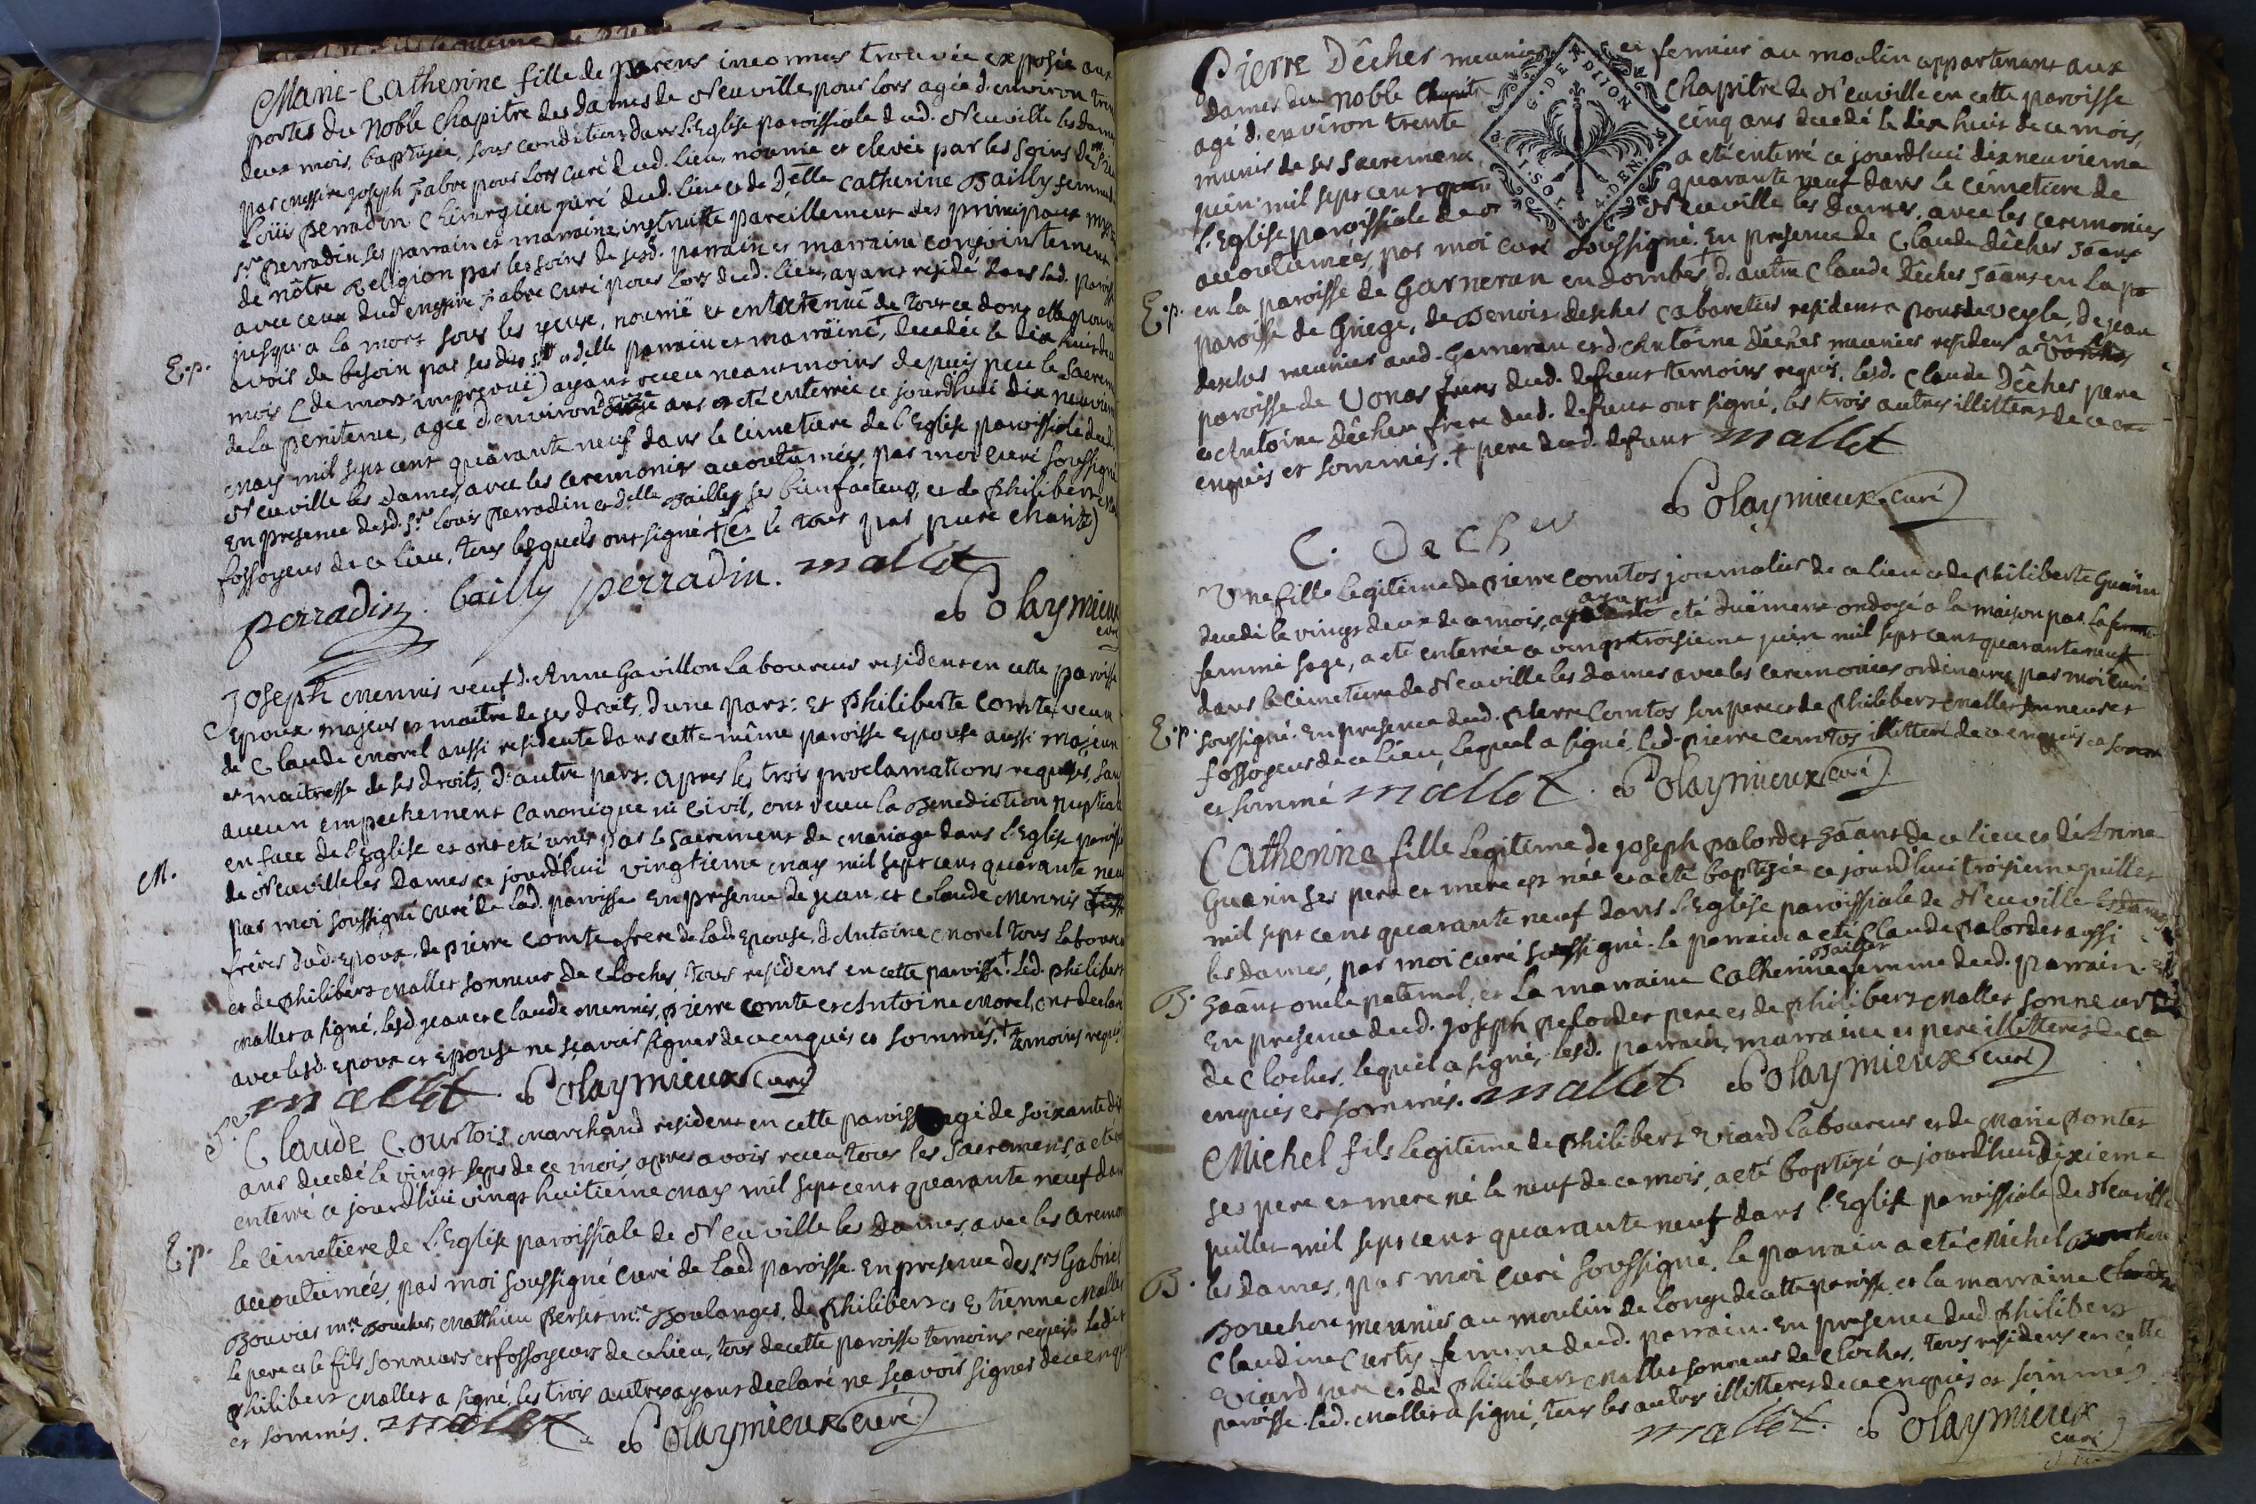 Marie-Catherine fille de parens inconnus trouvée exposée aux
portes du Noble Chapitre des Dames de Neuville, pour lors agée d'environ
deux mois, baptisée, sous condition dans l'Eglise paroissiale dud. Neuville les dames
par messire joseph Fabre pour lors curé dud. lieu, nourrie et elevée par les soins de
Louis perradin Chirurgien juré dud. lieu et de Delle Catherine Bailly femme
perradin, ses parrain et marraine, instruitte pareillement des principaux
de nôtre Religion par les soins de sesd. parrain et marraine conjointement
avec ceux dud. messire Fabre curé pour lors dud. lieu, ayant residé dans lad.
jusqu'a la mort sous les yeux, nourrie et entretenuë de tout ce dont elle
E.p.
avoit de besoin par sesdits Sr et delle parrain et marraine, decedée le dix huit
mois (de mort imprevuë) ayant receu neantmoins depuis peu le
de la penitence, agée d'environ ans a eté enterrée ce jourdhui dix
may mil sept cent quarante neuf dans le cimetiere de l'Eglise paroissiale
Neuville les Dames, avec les ceremonies accoutumées, par moi curé soussigné
En presence desd. Sr Louis perradin et delle Bailly ses bienfacteurs, et de philibert
fossoyeur de ce lieu, tous lesquels ont signé + (et le tout par pure charité)
perradin. bailly perradin. mallet
Polaymieux
curé
Joseph Mennis veuf d'Anne Gavillon laboureur resident en cette
Epoux majeur et maitre de ses droits, d'une part: Et Philiberte Comte veuve
de Claude Morel aussi residente dans cette même paroisse Epouse aussi
et maitresse de ses droits, d'autre part: apres les trois proclamations requises,
aucun empechement Canonique ni civil, ont receu la Benediction
en face de l'Eglise et ont eté unis par le Sacrement de Mariage dans l'Eglise
M.
de Neuville les Dames ce jourd'hui vingtieme may mil sept cent quarante
par moi soussigné curé de lad. paroisse En presence de jean et Claude Mennis
freres dud. Epoux, de pierre Comte frere de lad. Epouse, d'Antoine Morel tous
et de philibert Mallet sonneur de Cloches, tous residens en cette paroisse + Led. philibert
Mallet a signé, lesd. jean et Claude Mennis, pierre Comte et Antoine Morel, ont
avec lesd. Epoux et Epouse ne sçavoir signer de ce enquis et sommés. + temoins
mallet. Polaymieux curé
Claude Courtois Marchand resident en cette agé de soixante
ans decedé le vingt sept de ce mois, apres avoir receu tous les Sacremens, a eté
enterré ce jourd'hui vingt huitieme May mil sept cent quarante neuf
E.p.
le cimetiere de l'Eglise paroissiale de Neuville les Dames, avec les
accoutumées, par moi soussigné curé de lad. paroisse. En presence des Srs Gabriel
Bouvier me Boucher, Matthieu Perset me Boulanger, de philibert et Etienne
le pere et le fils sonneurs et fossoyeurs de ce lieu, tous de cette paroisse temoins requis ledit
philibert Mallet a signé, les trois autres ayant declaré ne sçavoir signer de ce
et sommés. mallet. Polaymieux curé
Pierre Dêcher meunier et fermier au moulin appartenant aux
dames du noble Chapitre de Neuville en cette paroisse
agé d'environ trente cinq ans decedé le dix huit de ce mois,
munis de ses sacremens, a eté enterré ce jourd'hui dixneuvieme
juin mil sept cent quarante neuf dans le cimetiere de
l'Eglise paroissiale de Neuville les Dames, avec les ceremonies
G. D E R D I I O N
accoutumées, par moi curé soussigné. En presence de Claude Dêcher
E.p.
en la paroisse de Garneran en dombes, + d'autre Claude Dêcher en la
paroisse de Griege, de Benoit descher cabaretier resident a pont de veyle, de jean
descher meunier aud. Garneran et d'Antoine Dêcher meunier resident en
paroisse de Vonas dud. defunt temoins requis, lesd. Claude Dêcher pere
et Antoine Dêcher frere dud. defunt ont signé, les trois autres illitteres de ce
enquis et sommés. + pere dud. defunt mallet
Polaymieux curé
C. Decher
Une fille legitime de pierre Comtos journalier de ce lieu et de philiberte Guerin
decedé le vingt deux de ce mois, ayant eté duëment ondoyé a la maison par la
femme sage, a eté enterrée ce vingt troisieme juin mil sept cent quarante neuf
dans le cimetiere de Neuville les dames avec les ceremonies ordinaires, par moi curé
E.p.
soussigné. En presence dud. pierre Comtos son pere et de philibert Mallet sonneur et
fossoyeur de ce lieu, lequel a signé, led. pierre Comtos illitteré de ce enquis
et sommé mallet. Polaymieux curé
Catherine fille legitime de joseph palordet de ce lieu et de Anne
Guerin ses pere et mere est née et a eté baptisée ce jourd'hui troisieme juillet
mil sept cent quarante neuf dans l'Eglise paroissiale de Neuville
les dames, par moi curé soussigné. le parrain a eté Claude palordet aussi
B.
oncle paternel, et la marraine Catherine femme dud. parrain.
En presence dud. joseph palordet pere et de philibert Mallet sonneur
de Cloches, lequel a signé, lesd. parrain, marraine et pere illitteres de ce
enquis et sommés. mallet Polaymieux curé
Michel fils legitime de philibert Viard laboureur et de Marie Pontet
ses pere et mere né le neuf de ce mois, a eté baptizé ce jourd'hui dixieme
juillet mil sept cent quarante neuf dans l'Eglise paroissiale de Neuville
B.
les dames, par moi curé soussigné. le parrain a eté Michel
Bouchon meunier au moulin de longe de cette paroisse, et la marraine
Claudine Curty femme dud. parrain. En presence dud. philibert
Viard pere et de philibert Mallet sonneur de Cloches, tous residens en cette
paroisse. led. Mallet a signé, tous les autres illitteres de ce enquis et sommés
mallet. Polaymieux
curé